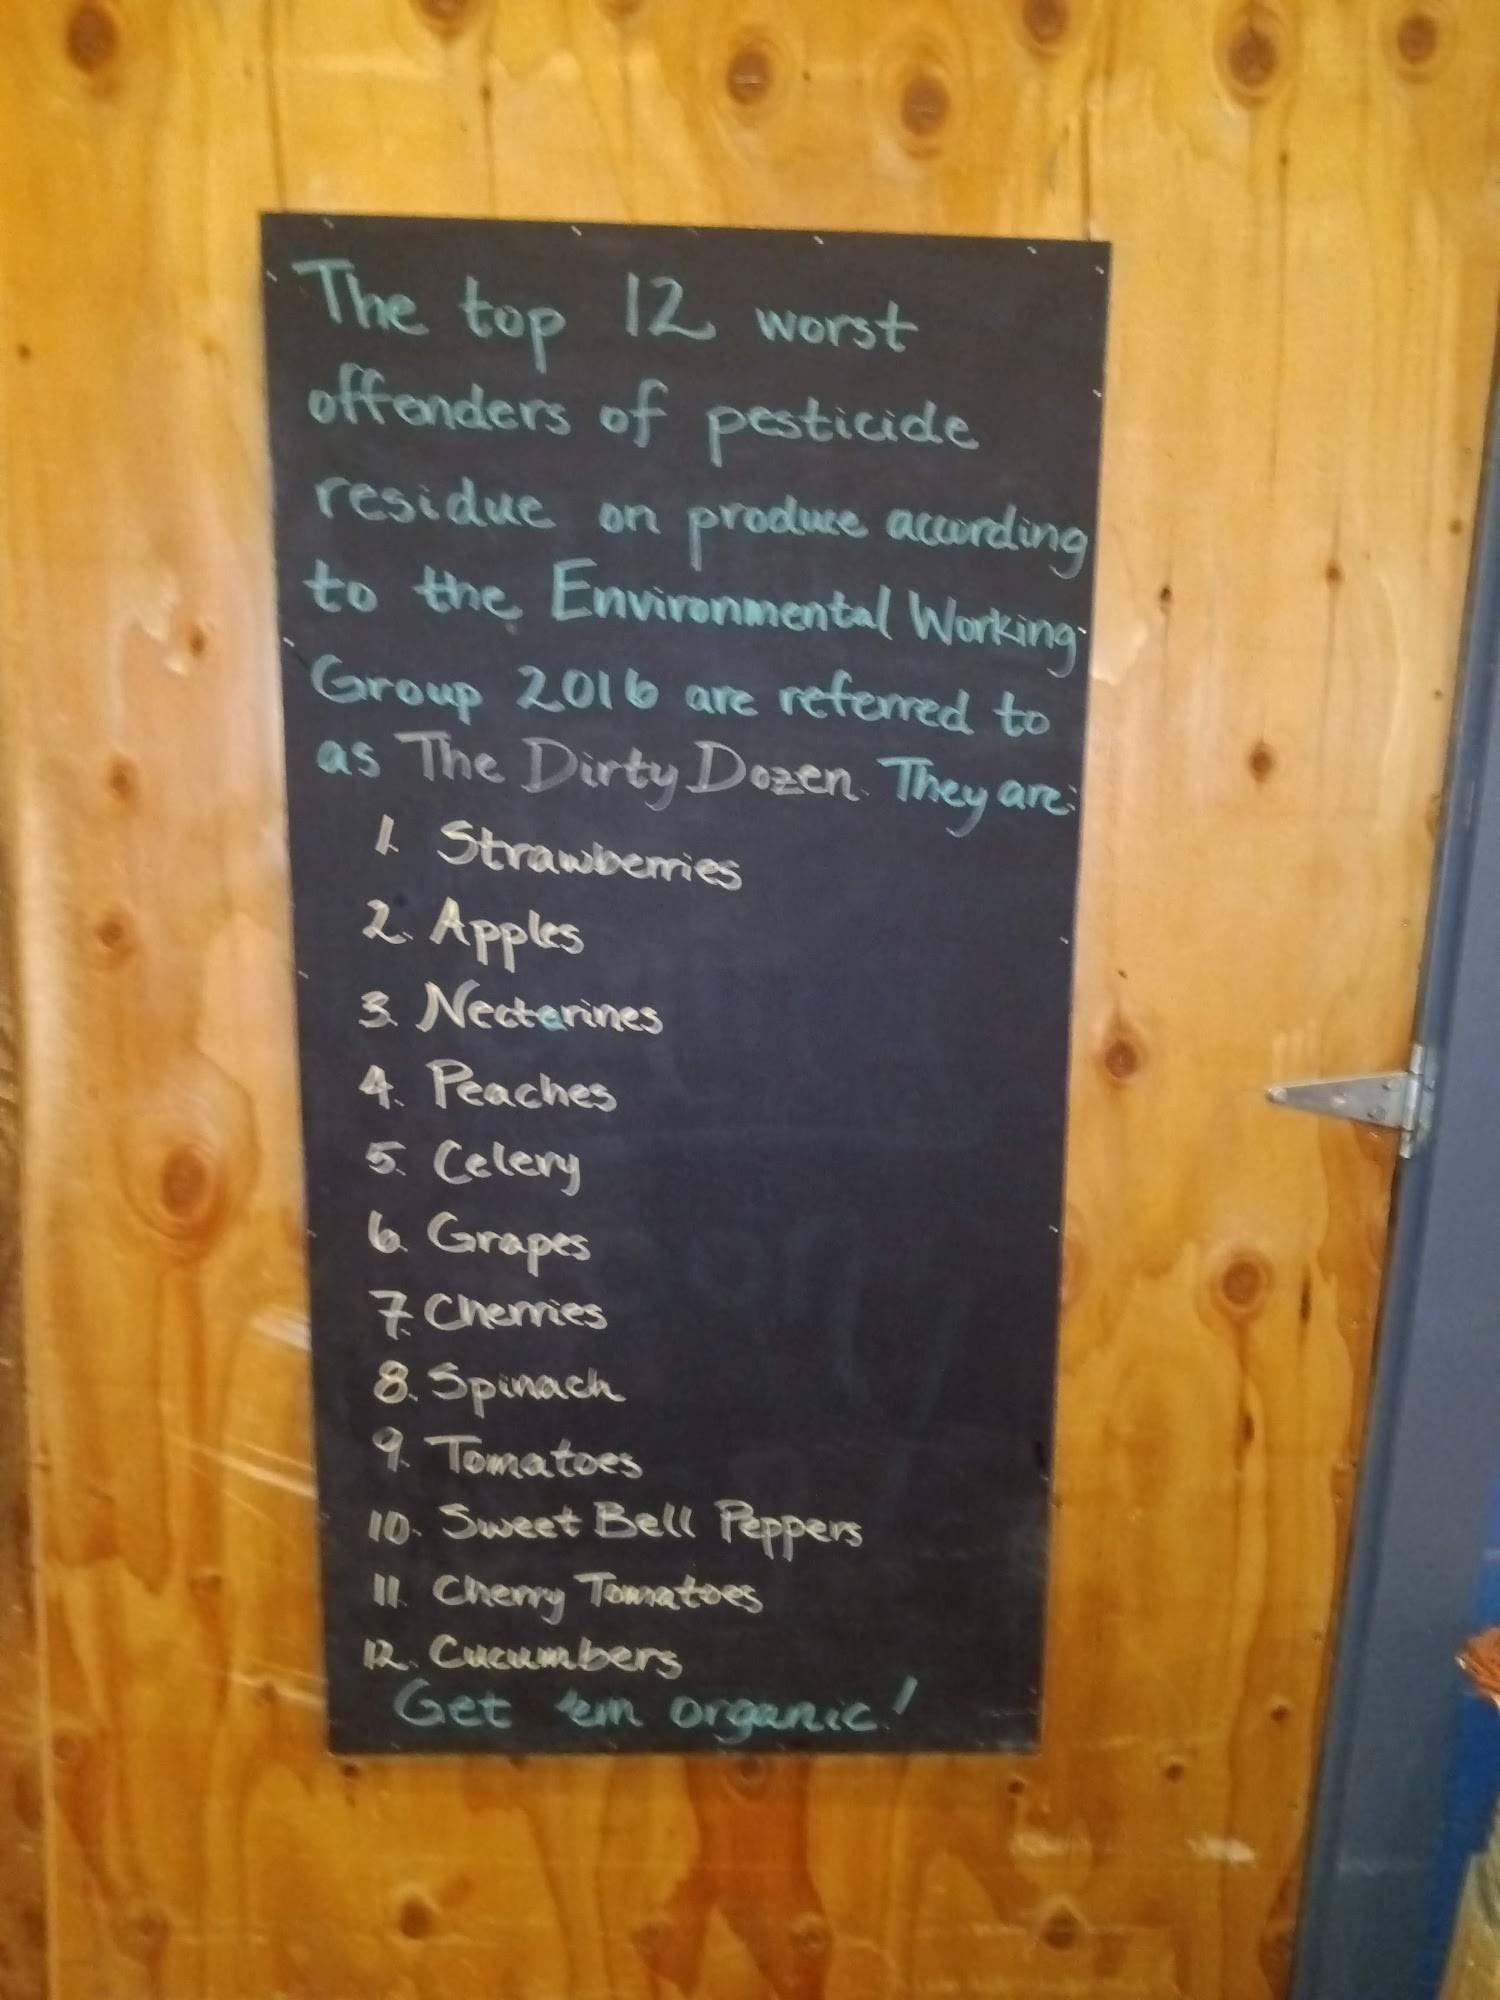 The top 12 worst
offenders of pesticide
residue on produce according
to the Environmental Working
Group 2016 are referred to
as The Dirty Dozen. They are:
1. Strawberries
2. Apples
3. Necterines
4. Peaches
5. Celery
6. Grapes
7. Cherries
8. Spinach
9. Tomatoes
10. Sweet Bell Peppers
11. Cherry Tomatoes
12. Cucumbers
Get 'em organic!